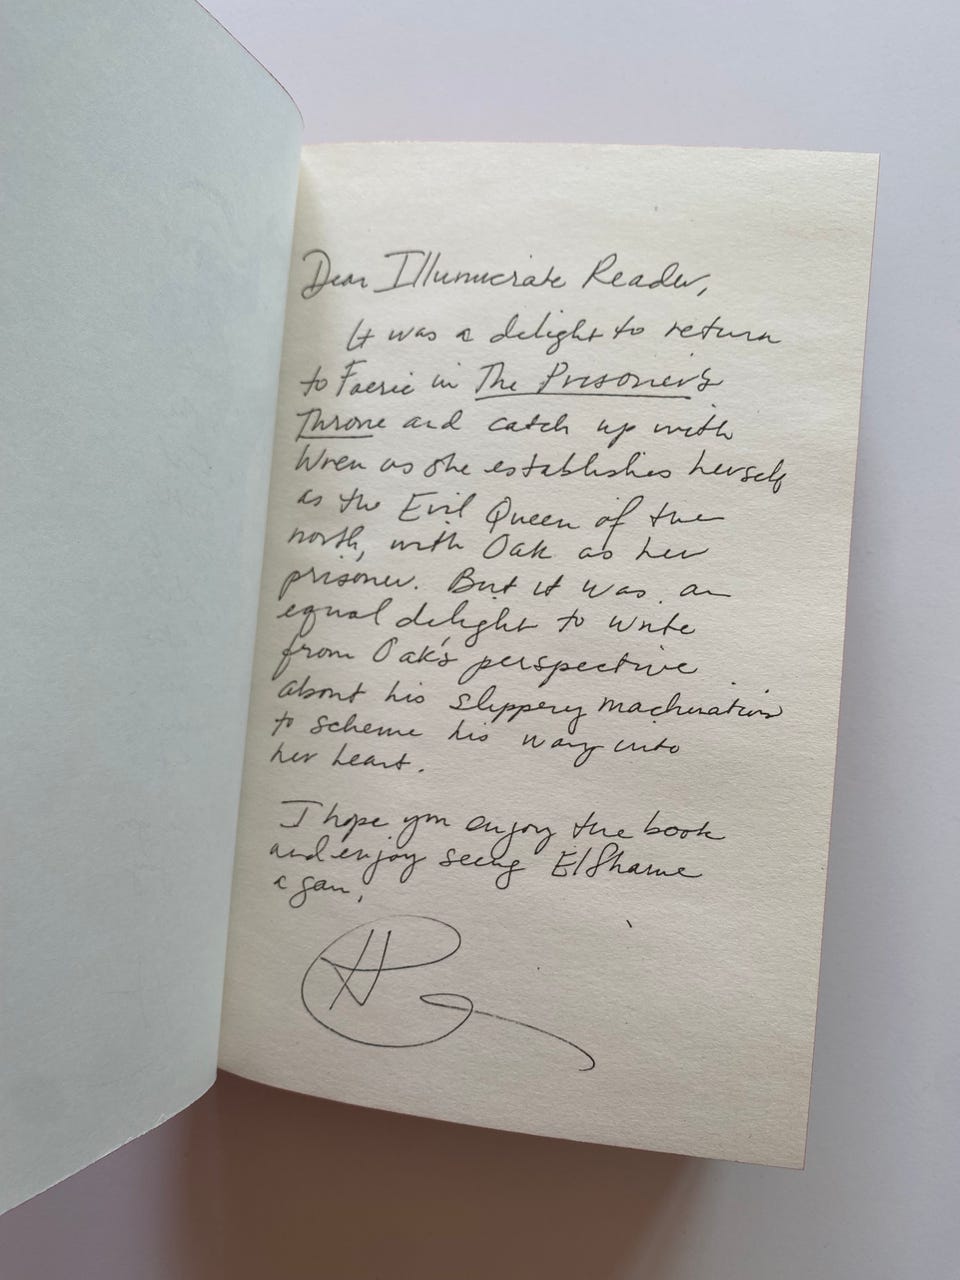 Dear Illumicrate Reader,
It was a delight to return
to Faerie in The Prisoner's
Throne and catch up with
Wren as she establishes herself
as the Evil Queen of the
north, with Oak as her
prisoner. But it was an
equal delight to write
from Oak's perspective
about his slippery machinations
to scheme his way into
her heart.
I hope you enjoy the book
and enjoy seeing Elfhame
again,
HB